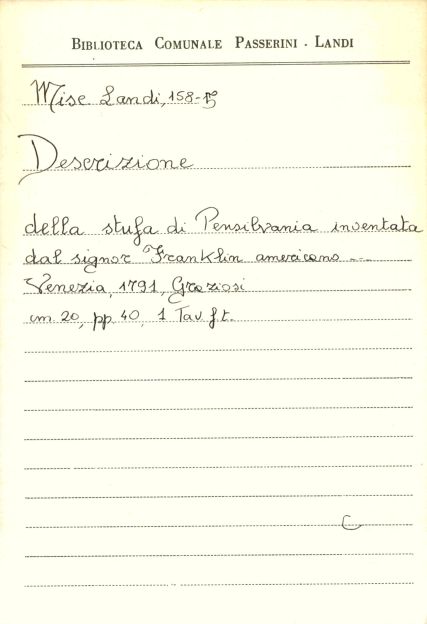 BIBLIOTECA COMUNALE PASSERINI - LANDI
Misc Landi, 158-15
Descrizione
della stufa di Pensilvania inventata
dal signor Franklin americano ---
Venezia, 1791, Graziosi
cm 20, pp. 40, 1 Tav f.t.
C